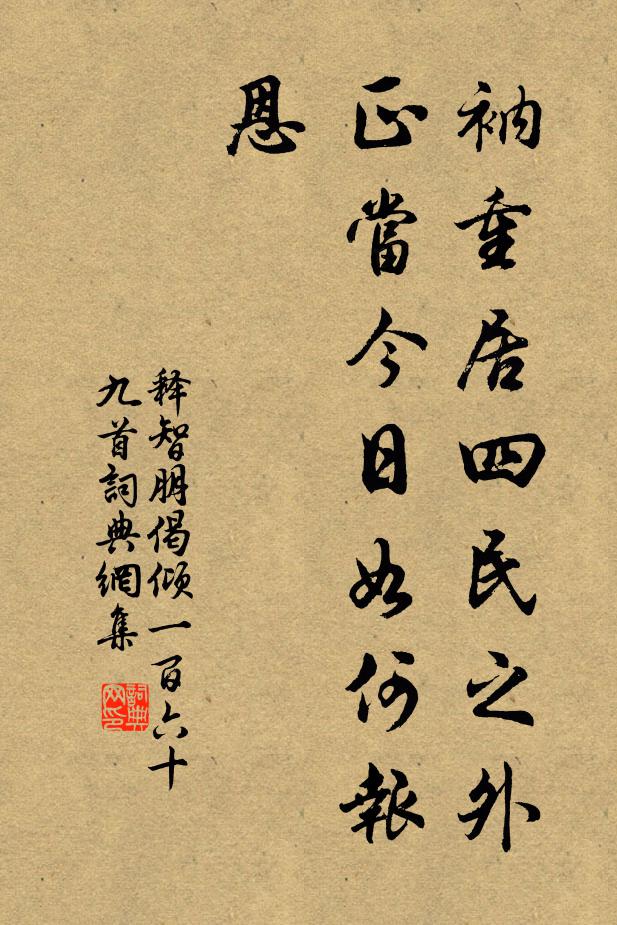 衲重居四民之外
正當今日如何報
恩
释智朋偈傾一百六十
九首詞典網集
詞典
网印